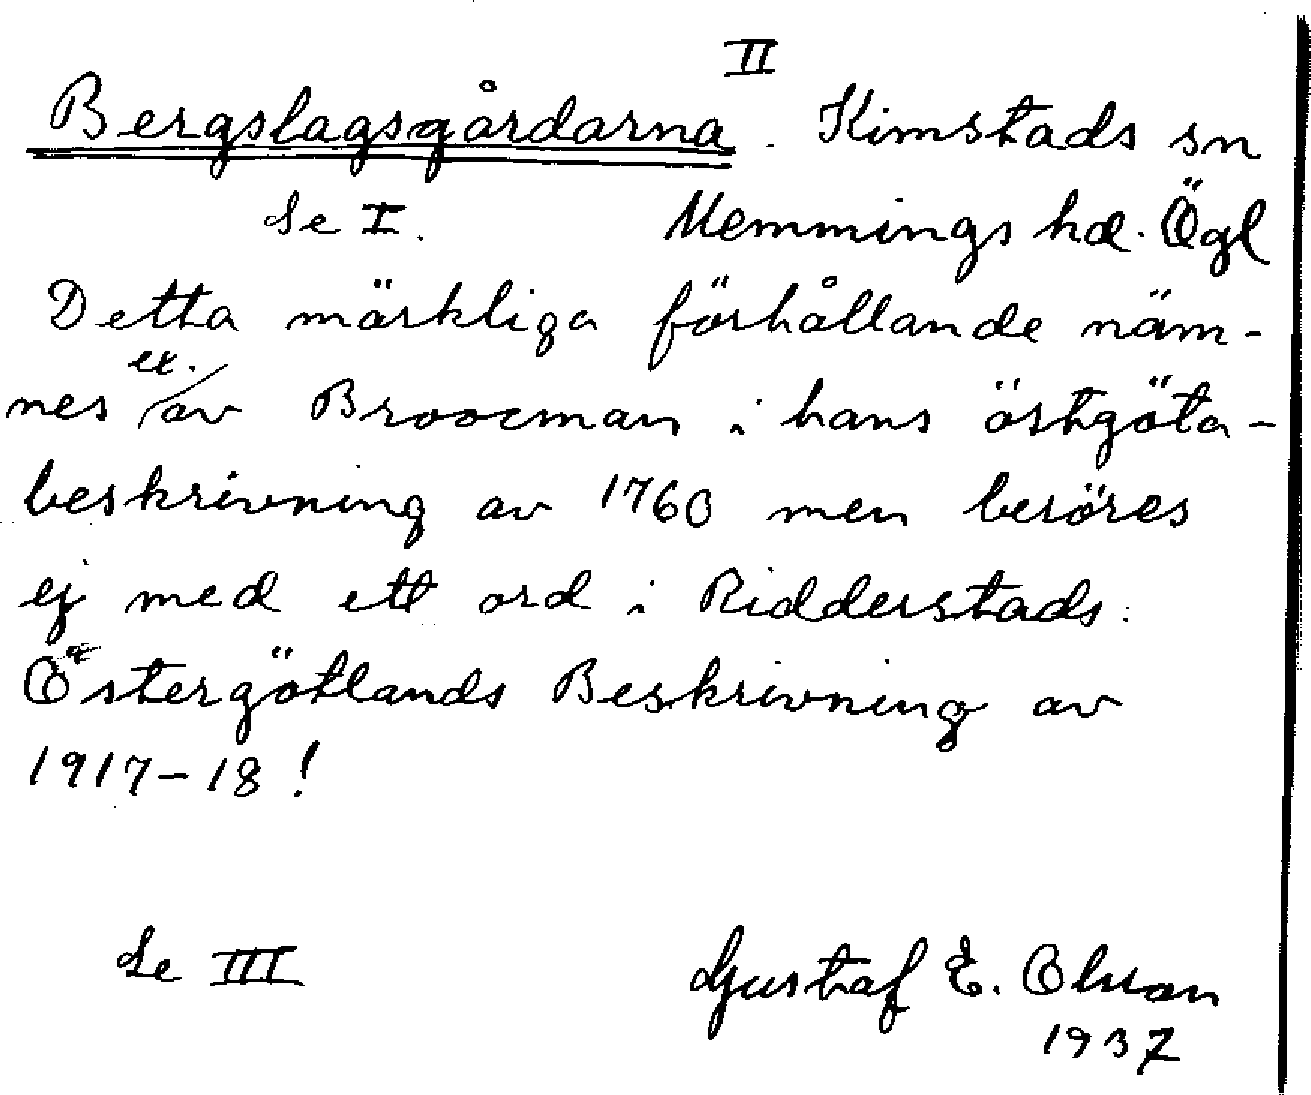 II
Bergslagsgårdarna. Kimstads sn
Se I. Memmings hd. Ögl
Detta märkliga förhållande näm-
nes av Broocman i hans östgöta-
beskrivning av 1760 men beröres
ej med ett ord i Ridderstads:
Östergötlands Beskrivning av
1917-18!
Se III Gustaf E. Olsson
1937